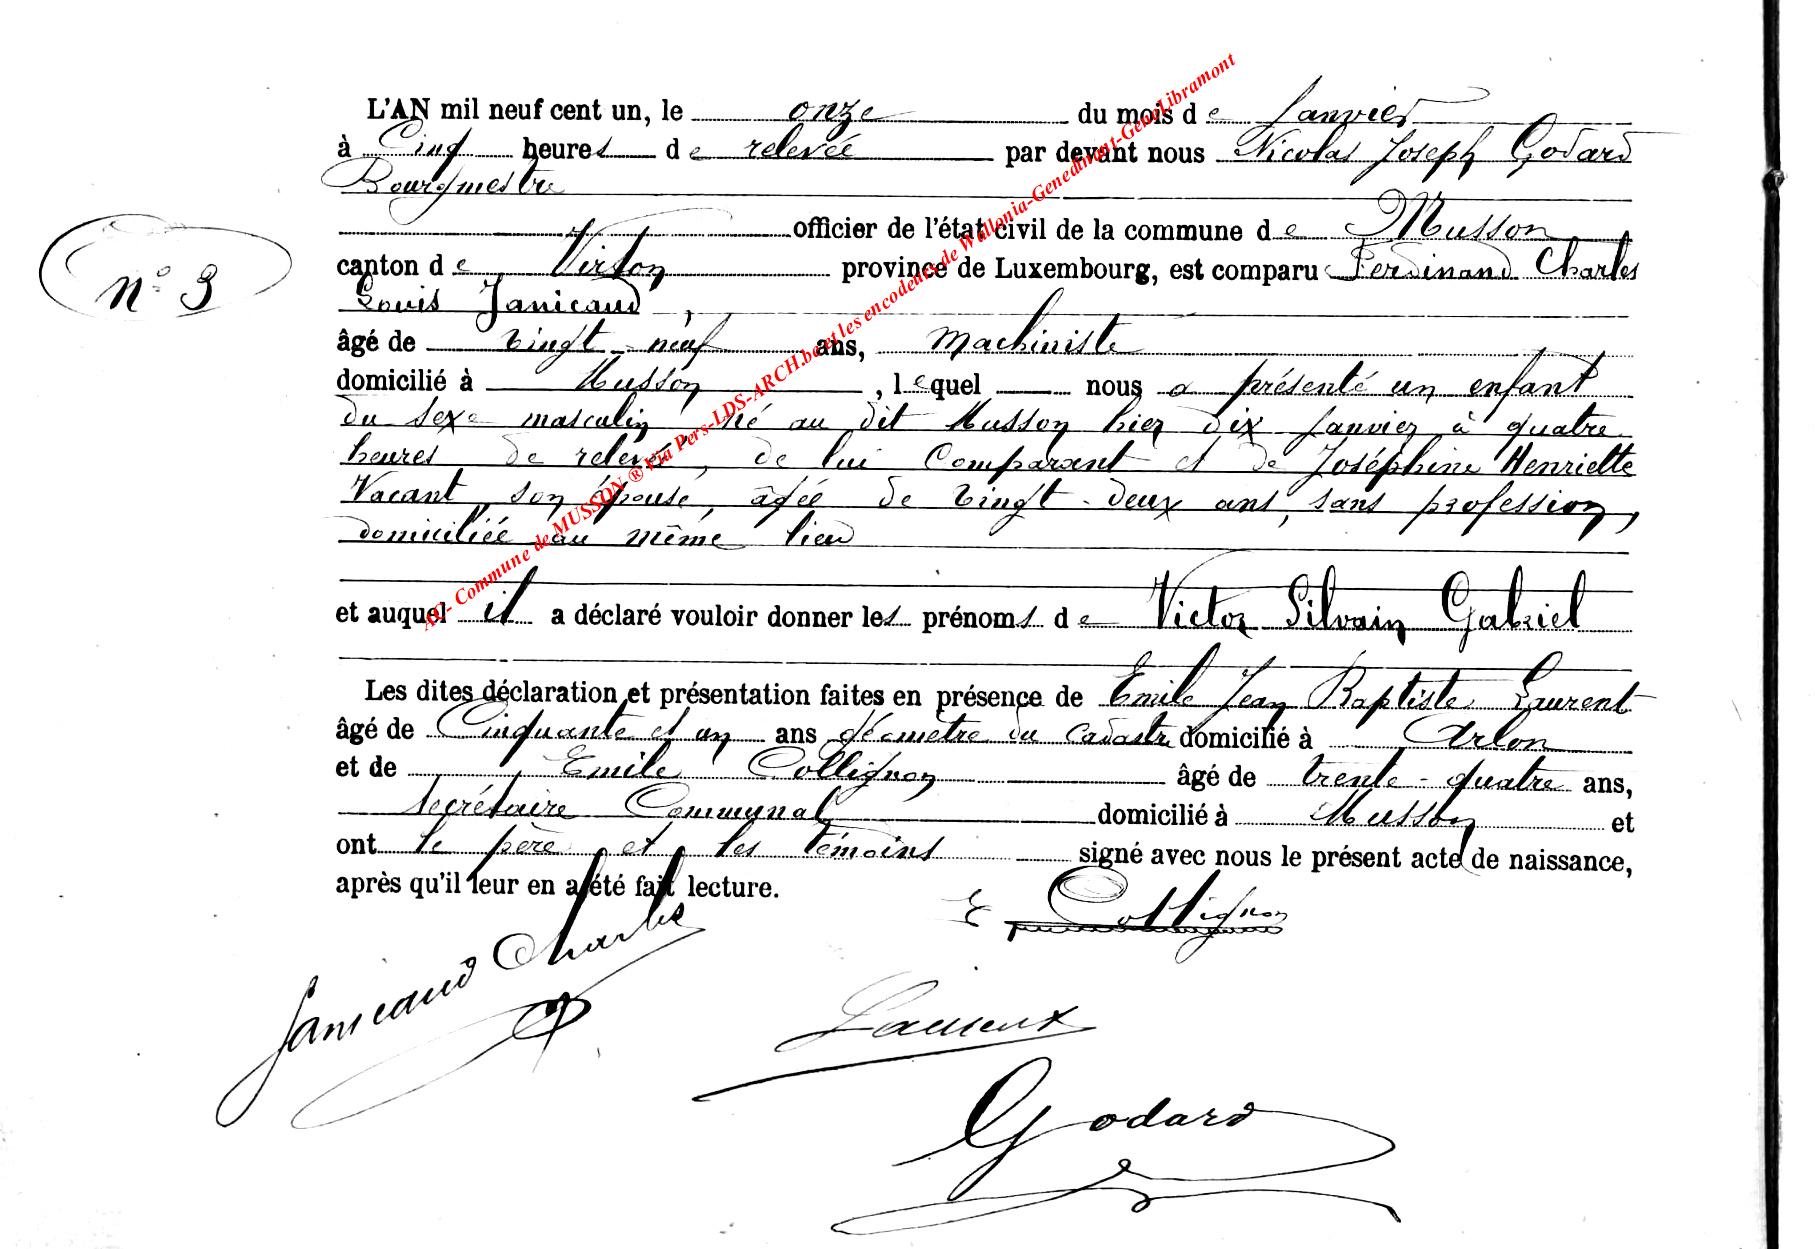 L'AN mil neuf cent un, le onze du mois de Janvier
à Cinq heures de relevée par devant nous Nicolas Joseph Godard
Bourgmestre
officier de l'état civil de la commune de Musson
n° 3
canton de Virton province de Luxembourg, est comparu Ferdinand Charles
Louis Janicaud,
âgé de vingt-neuf ans, machiniste
domicilié à Musson, lequel nous a présenté un enfant
du sexe masculin né au dit Musson hier dix Janvier à quatre
heures de relevée, de lui Comparant et de Joséphine Henriette
Vacant, son épouse, âgée de vingt-deux ans, sans profession,
domiciliée au même lieu
et auquel il a déclaré vouloir donner les prénoms de Victor Silvain Gabriel
Les dites déclaration et présentation faites en présence de Emile Jean Baptiste Laurent
âgé de Cinquante et un ans géomètre du cadastre domicilié à Arlon
et de Emile Collignon âgé de trente-quatre ans,
secrétaire Communal domicilié à Musson et
ont le père et les témoins signé avec nous le présent acte de naissance,
après qu'il leur en a été fait lecture.
E Collignon
Janicaud Charles
Laurent
Godard
AC- Commune de MUSSON ® Via Pers-LDS-ARCH.be et les encodeurs de Wallonia-Genedinant-GeneLibramont